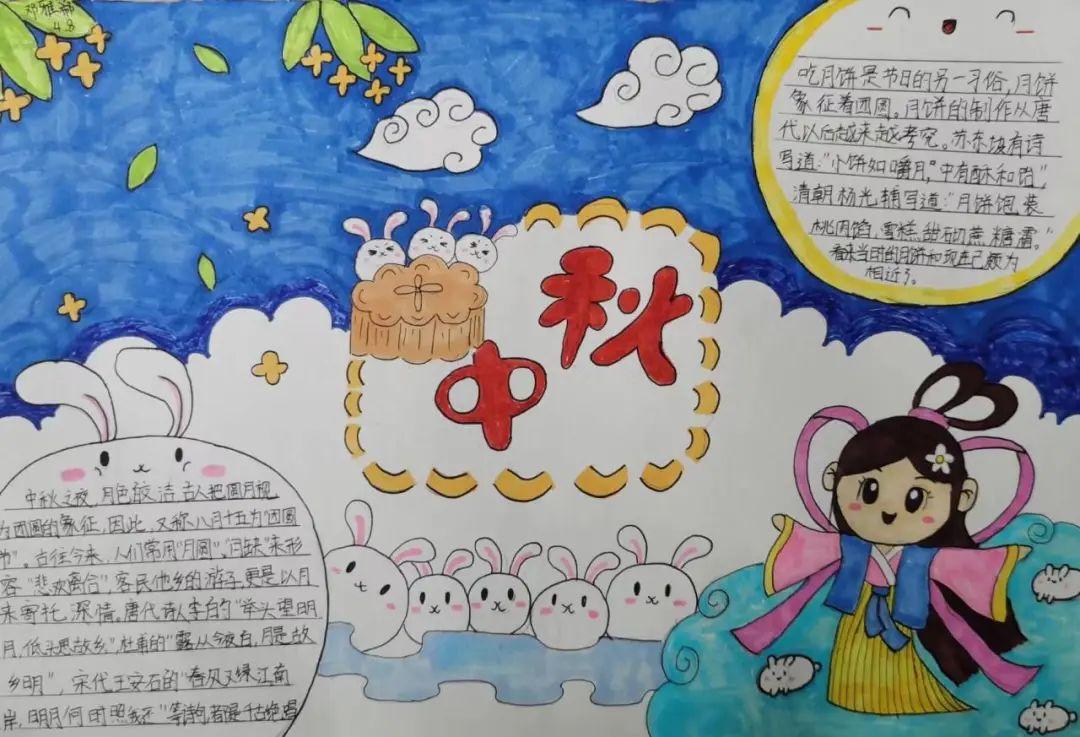 邓雅
4.8
吃月饼是节日的另一习俗,月饼
象征着团圆。月饼的制作从唐
代以后越来越考究。苏东坡有诗
写道:"小饼如嚼月,中有酥和饴",
清朝杨光辅写道:"月饼饱装
桃肉馅,雪糕甜砌蔗糖霜。"
看来当时的月饼和现在已颇为
相近了。
中秋
中秋之夜,月色皎洁,古人把圆月视
为团圆的象征,因此,又称八月十五为"团圆
节"。古往今来,人们常用"月圆"、"月缺"来形
容"悲欢离合",客民他乡的游子,更是以月
来寄托深情。唐代诗人李白的"举头望明
月,低头思故乡",杜甫的"露从今夜白,月是故
乡明",宋代王安石的"春风又绿江南
岸,明月何时照我还"等诗句,都是千古绝唱